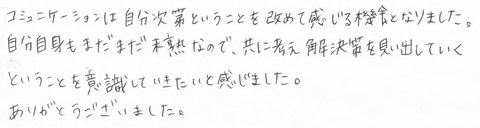 コミュニケーションは自分次第ということを改めて感じる機会となりました。
自分自身もまだまだ未熟なので、共に考え解決策を見い出していく
ということを意識していきたいと感じました。
ありがとうございました。